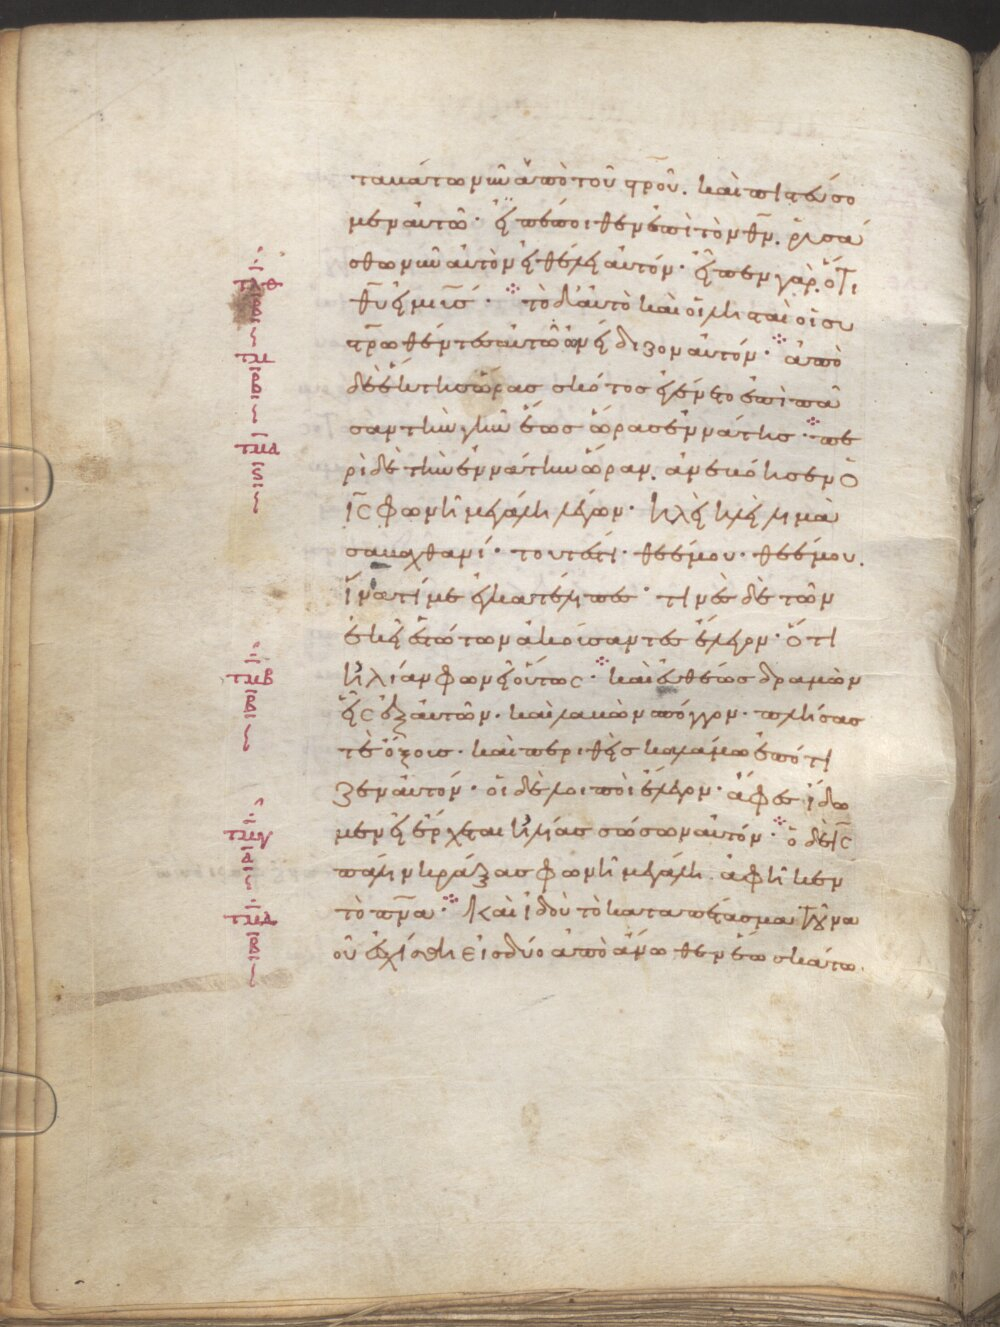 ταβάτω νῦν ἀπὸ τοῦ στρου. καὶ πιστεύσο
μεν αὐτῶ· εἰ πέποιθεν ἐπὶ τὸν θν. ρυσά
σθω νῦν αὐτὸν εἰ θέλει αὐτόν· εἶπεν γὰρ. ὅτι
θυ εἰμι υς· τὸ δ' αὐτὸ καὶ οἱ λησταὶ οἱ συ
στρωθέντες αὐτῶ ὠνείδιζον αὐτόν· ἀπὸ
δὲ ἕκτης ὥρας σκότος ἐγένετο ἐπὶ πᾶ
σαν τὴν γὴν ἕως ὥρας ἐννάτης· πε
ρὶ δὲ τὴν ἐννάτην ὥραν. ἀνεβόησεν ὁ
ις φωνῆ μεγάλη λέγων· ἠλεὶ ἠλεὶ λιμὰ
σαβαχθανί· τουτέστι· θεέ μου· θεέ μου.
ἵνα τί με ἐγκατέλιπες· τινὲς δὲ τῶν
ἐκεῖ ἑστώτων ἀκούσαντες ἔλεγον· ὅτι
ἠλίαν φωνεῖ οὕτος· καὶ εὐθέως δραμὼν
εἷς ἐξ αὐτῶν. καὶ λαβὼν σπόγγον. πλήσας
τὲ ὄξους. καὶ περιθεὶς καλάμω ἐπότι
ζεν αὐτόν· οἱ δὲ λοιποὶ ἔλεγον· ἄφες ἴδω
μεν εἰ ἔρχεται ἠλίας σώσων αὐτόν· ὁ δὲ ις
πάλιν κράξας φωνῆ μεγάλη. ἀφῆκεν
τὸ πνα· Καὶ ἰδοὺ τὸ καταπέτασμα τοῦ να
οῦ ἐσχίσθη εἰς δύο ἀπὸ ἄνωθεν ἕως κάτω.
τμα
τμβ
τμγ
τμδ